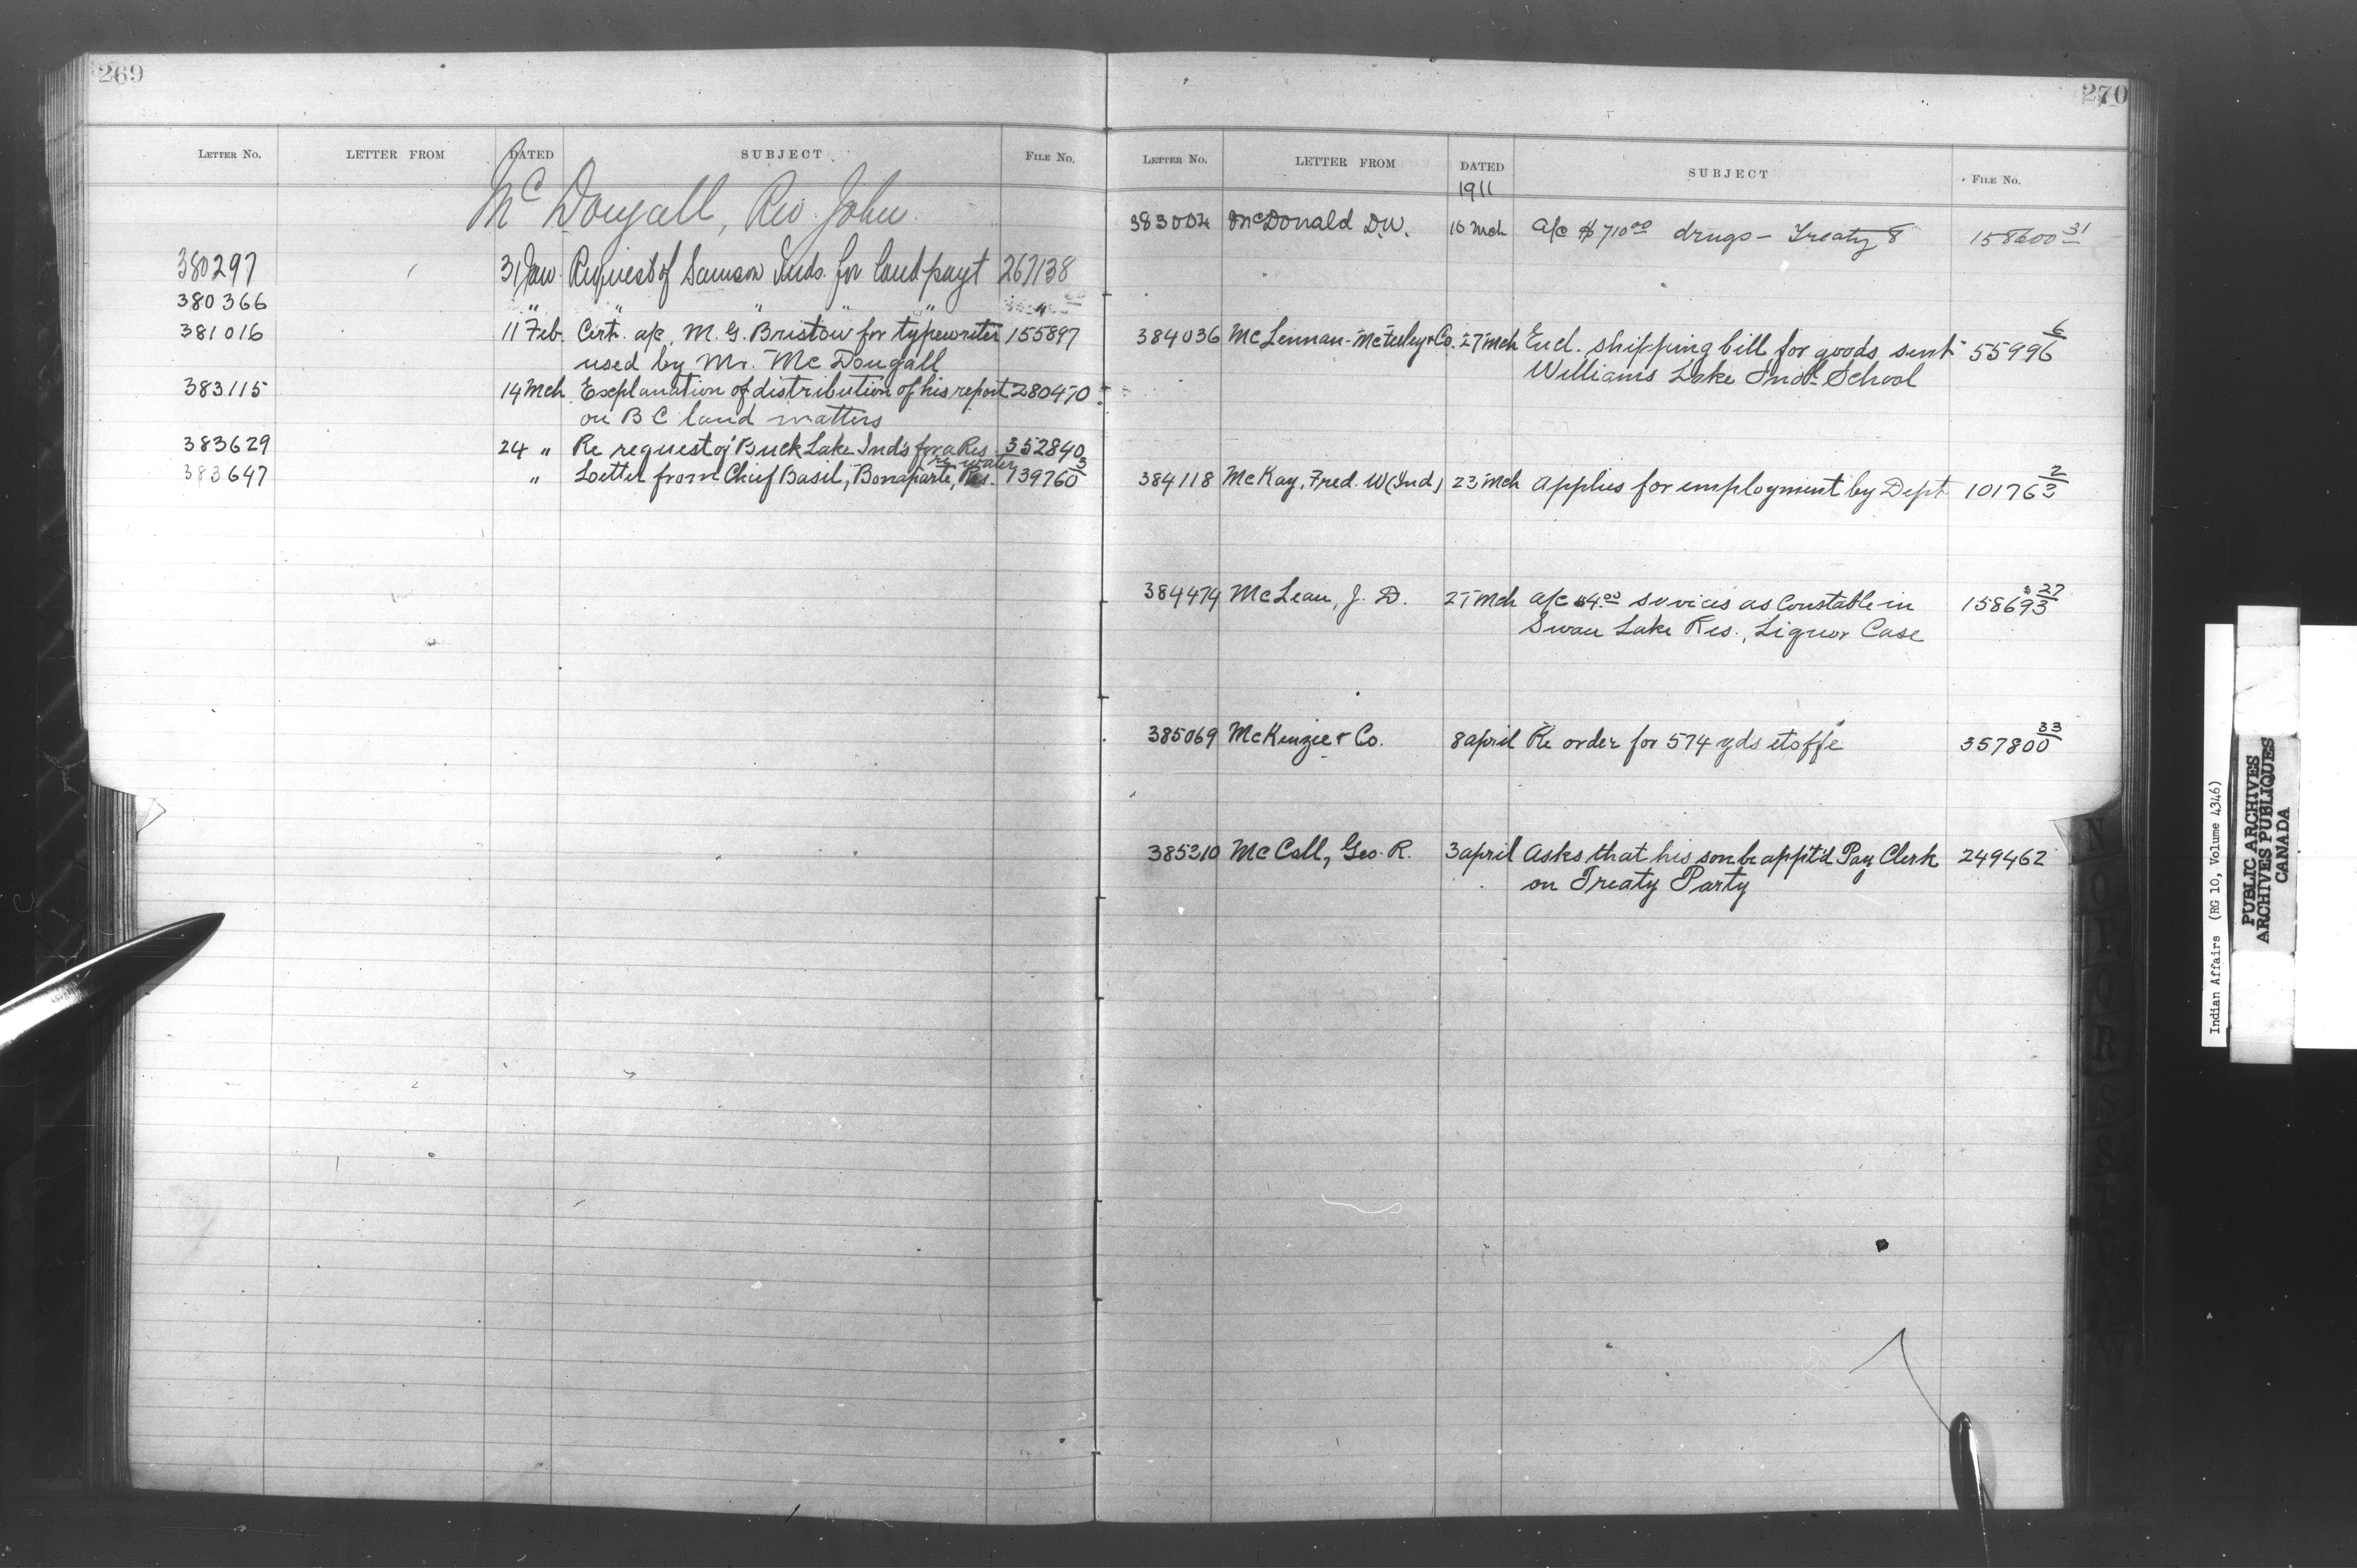 269
LETTER NO. LETTER FROM DATED SUBJECT FILE NO.
McDougall, Rev. John.
380297 31 Jan Request of Samson Inds. for land payt 267138
380366 " " " " " "
381016 11 Feb. Cert. a/c, M. G. Bristow for typewriter 155897
used by Mr. McDougall
383115 14 Mch Explanation of distribution of his report 280470
on B C land matters
383629 24 " Re request of Buck Lake Inds for a Res. 352840
re water
383647 " Letter from Chief Basil, Bonaparte, Res. 139760 3
270
LETTER NO. LETTER FROM DATED SUBJECT FILE NO.
1911
383004 McDonald D.W. 16 Mch a/c $710 00 drugs - Treaty 8 158600 31
384036 McLennan-McFeeley & Co. 27 Mch Encl. shipping bill for goods sent 55996 6
Williams Lake Indl School
384118 McKay, Fred. W (Ind) 23 Mch Applies for employment by Dept 101763 2
384474 McLean, J. D. 27 Mch a/c $4.00 services as Constable in 158693 27
Swan Lake Res., Liquor Case
385069 McKenzie & Co. 8 April Re order for 574 yds etoffe 357800 33
385210 McCall, Geo. R. 3 April Asks that his son be appt'd Pay Clerk 249462
on Treaty Party
Indian Affairs (RG 10, Volume 4346)
PUBLIC ARCHIVES
ARCHIVES PUBLIQUES
CANADA